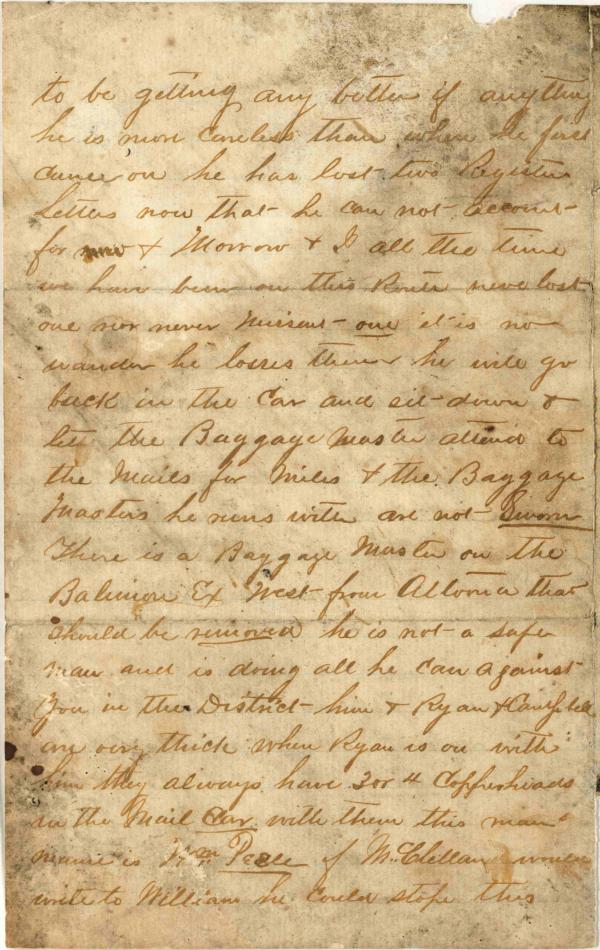 to be getting any better if anything
he is more careless than when he first
came on he has lost two Register
Letters now that he can not account
for & Morrow & I all the time
we have been on this Route never lost
one nor never missent one it is no
wonder he losses them he will go
back in the Car and sit down &
let the Baggage Master attend to
the Mails for Miles & the Baggage
Masters he runs with are not Sworn
There is a Baggage Master on the
Balimore Ex West from Altoona that
should be removed he is not a safe
man and is doing all he can against
you in the District him & Ryan & Campbell
are very thick when Ryan is on with
him they always have 3 or 4 Copperheads
in the Mail Car with them this man
name is Wm. of McClellan would
write to William he could stope this